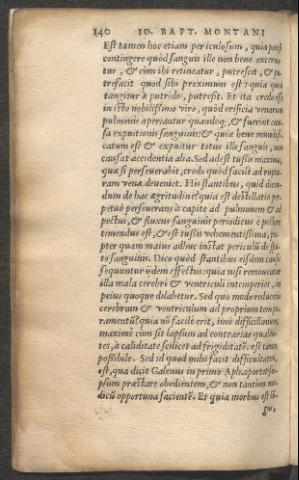 140 IO. BAPT. MONTANI
Est tamen hoc etiam periculosum, quia potest
contingere quòd sanguis ille non bene excerna
tur, & cùm ibi retineatur, putrescit, & pu
trefacit quod sibi proximum est: quia quod
tangitur à putrido, putrescit. Et ita credo esse
in isto nobilissimo viro, quòd orificia venarum
pulmonis aperiantur quandoq;, & fuerint cau
sa expuitionis sanguinis: & quia bene mundi
catum est & expuitur totus ille sanguis, non
causat accidentia alia. Sed adest tussis maxima,
quæ si perseuerabit, credo quòd facilè ad ruptu
ram venæ deueniet. His stantibus, quid dicen
dum de hac ægritudine? quia est destillatio per
petuò perseuerans à capite ad pulmonem &
pectus, & fluxus sanguinis periodicus è pectore
timendus est, & est tussis vehementissima, pro
pter quam maius adhuc instat periculũ de spu
to sanguinis. Dico quòd stantibus eisdem causis
sequuntur ijdem effectus: quia nisi remoueatur
illa mala cerebri & ventriculi intemperies, in
peius quoque dilabetur. Sed quo modo reducetur
cerebrum & ventriculum ad proprium tempe
ramentũ? quia nõ facilè erit, imò difficillimum,
maximè cùm sit lapsus ad contrarias qualita-
tes, à caliditate scilicet ad frigiditatẽ: est tamen
possibile. Sed id quod mihi facit difficultatem,
est, qua dicit Galenus in primo Aph. oportet ip-
psum præstare obedientem, & non tantùm me-
dicũ opportuna facientẽ. Et quia morbus est lõ-